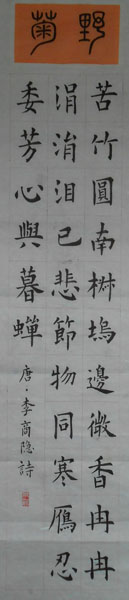 野菊
苦竹圓南椒塢邊微香冉冉
涓涓泪已悲節物同寒鴈忍
委芳心與暮蟬
唐·李商隐詩